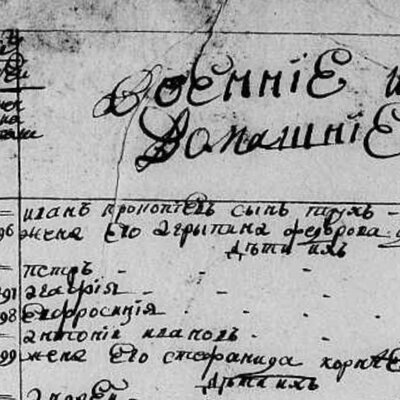 Военніе и
Домашніе
иванъ прокопіевъ сынъ
96 жена его агрыпина федорова
дѣти ихъ
петръ
97 агафія
98 евфросинія
антоній ивановъ
99 жена его стефанида корнѣе
дѣти ихъ
андрей